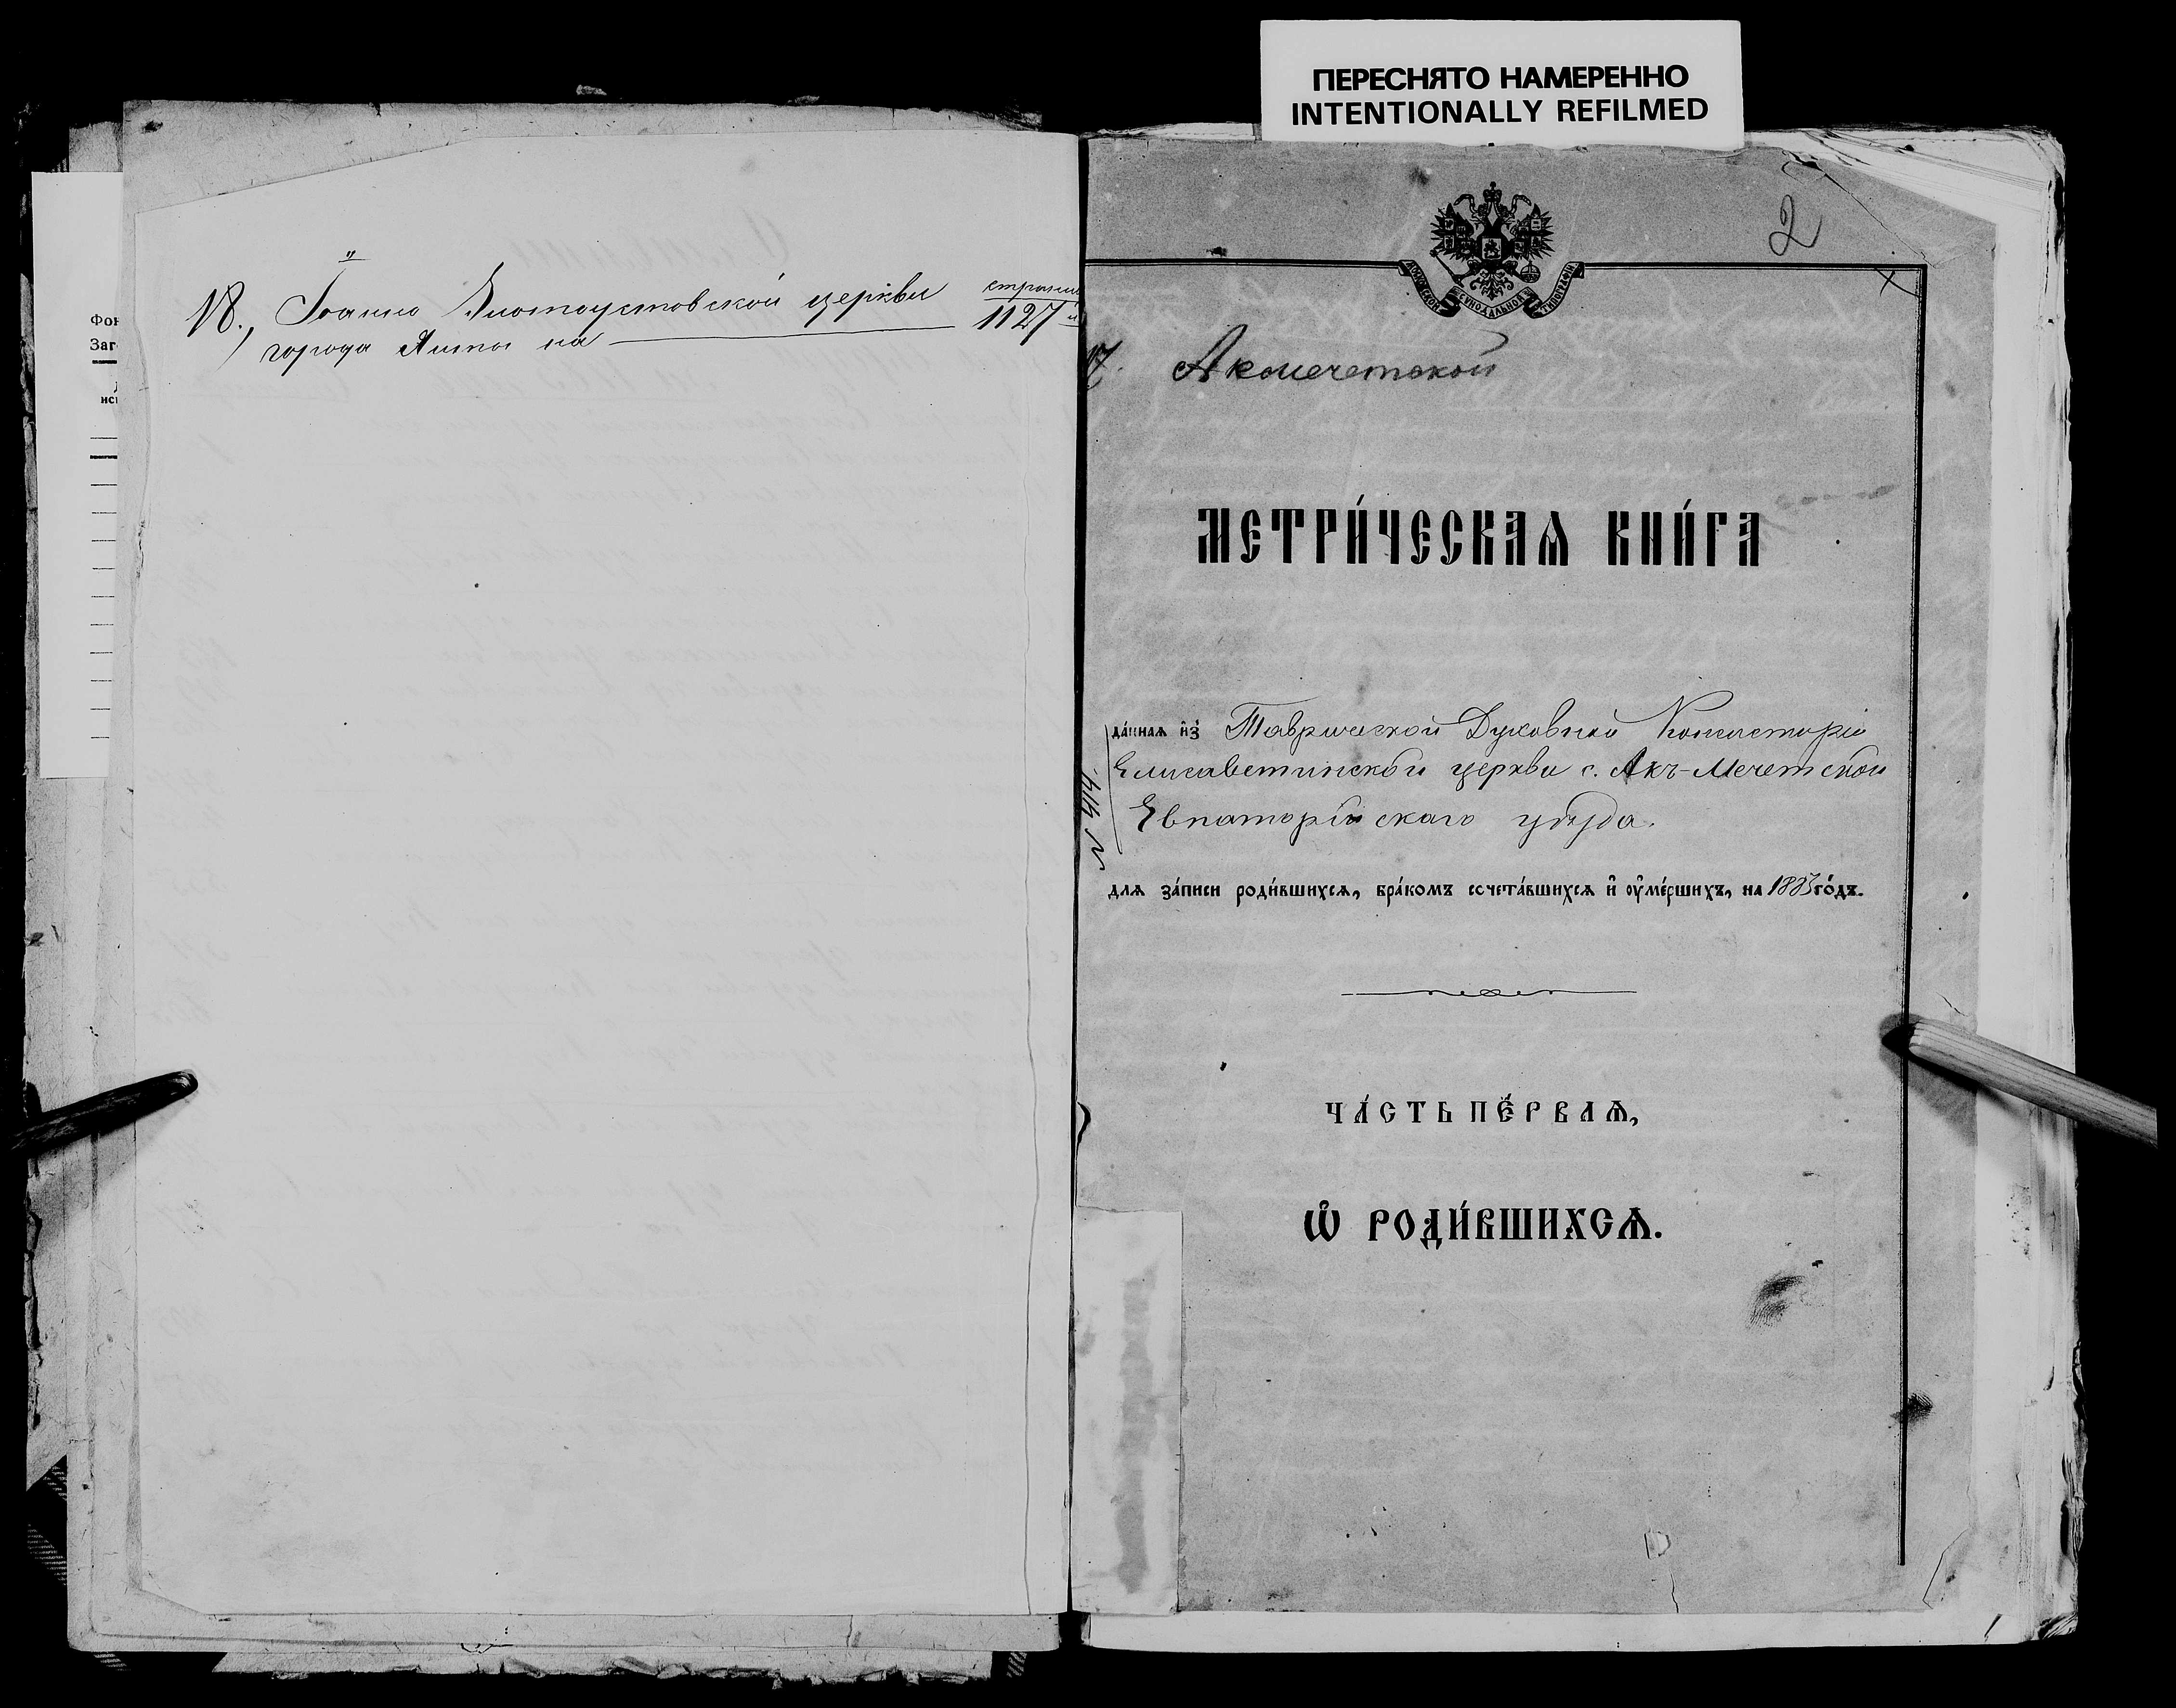 ПЕРЕСНЯТО НАМЕРЕННО
INTENTIONALLY REFILMED
Фон
Заг
18., Іоанно Златоустовской церкви
города Ялты на
1127
2
МОСКОВСКОЙ СѴНОДАЛЬНОЙ ТИПОГРАФІИ
Акмечетской
МЕТРИ́ЧЕСКАѦ КНИ́ГА
да́ннаѧ и҆з̾ Таврической Духовной Консисторіи
Елисаветинской церкви с. Акъ-Мечетской
Евпаторійскаго уѣзда.
для за́писи роди́вшихсѧ, бра́комъ сочета́вшихсѧ и҆ оу҆ме́ршихъ, на 1883 го́дъ.
ЧА́СТЬ ПЕ́РВАѦ,
Ѡ҆ РОДИ́ВШИХСѦ.